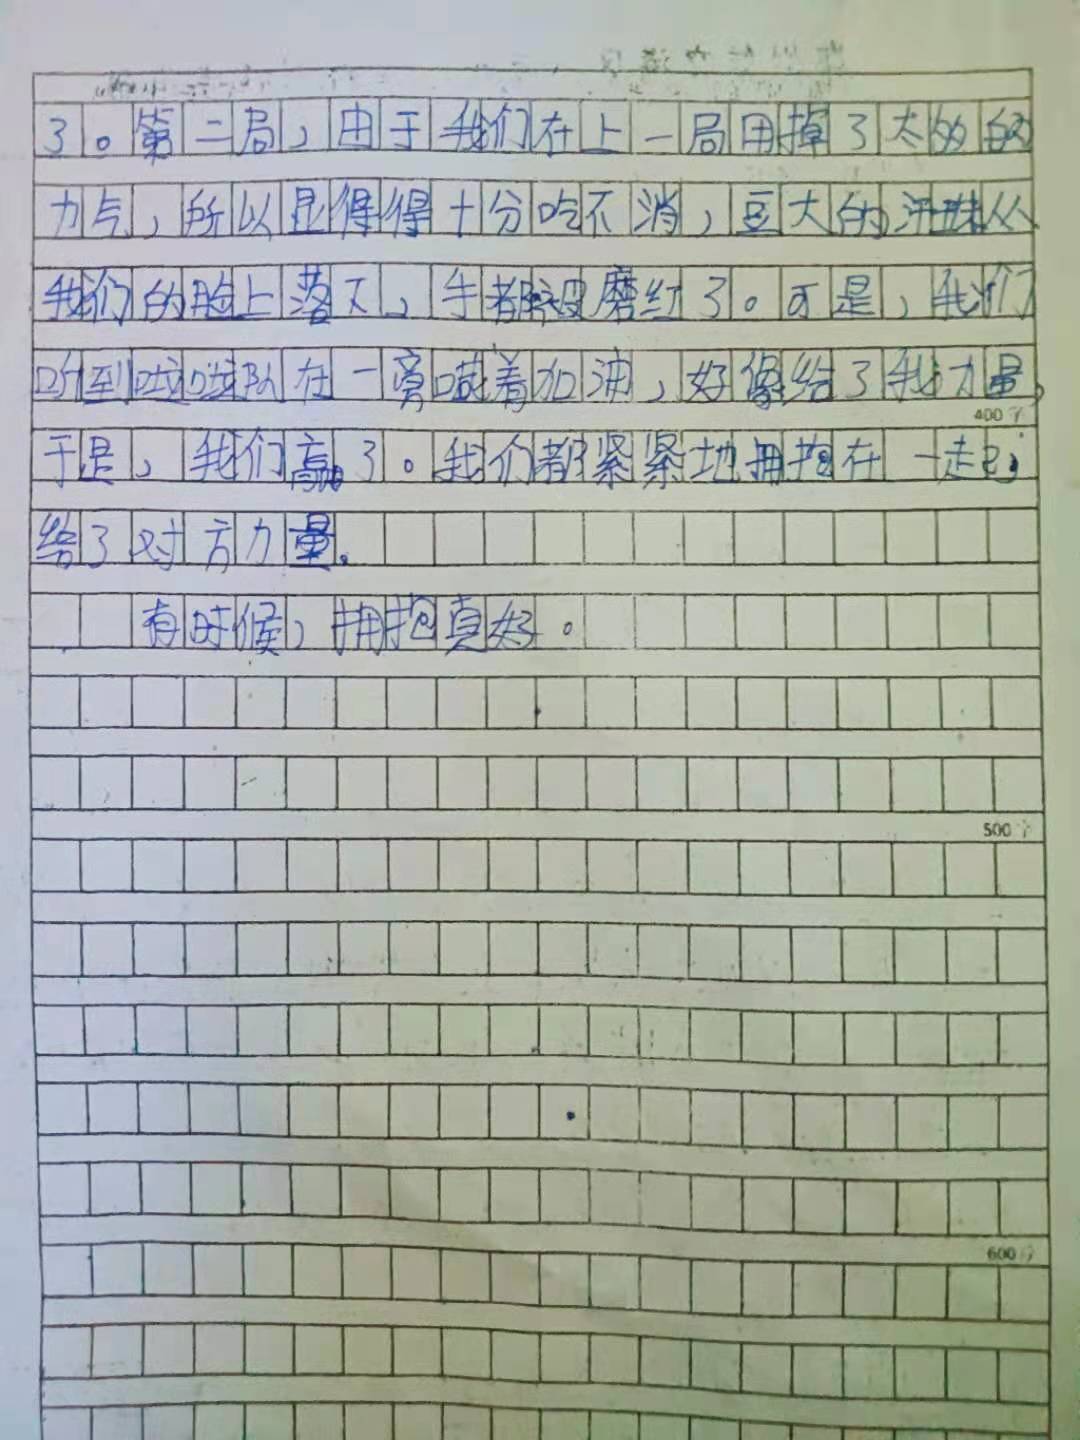 了。第二局，由于我们在上一局用掉了太多的
力气，所以显得得十分吃不消，豆大的汗珠从
我们的脸上落下，手都被磨红了。可是，我们
听到啦啦队在一旁喊着加油，好像给了我力量，
400字
于是，我们赢了。我们都紧紧地拥抱在一起，
给了对方力量。
有时候，拥抱真好。
500字
600字